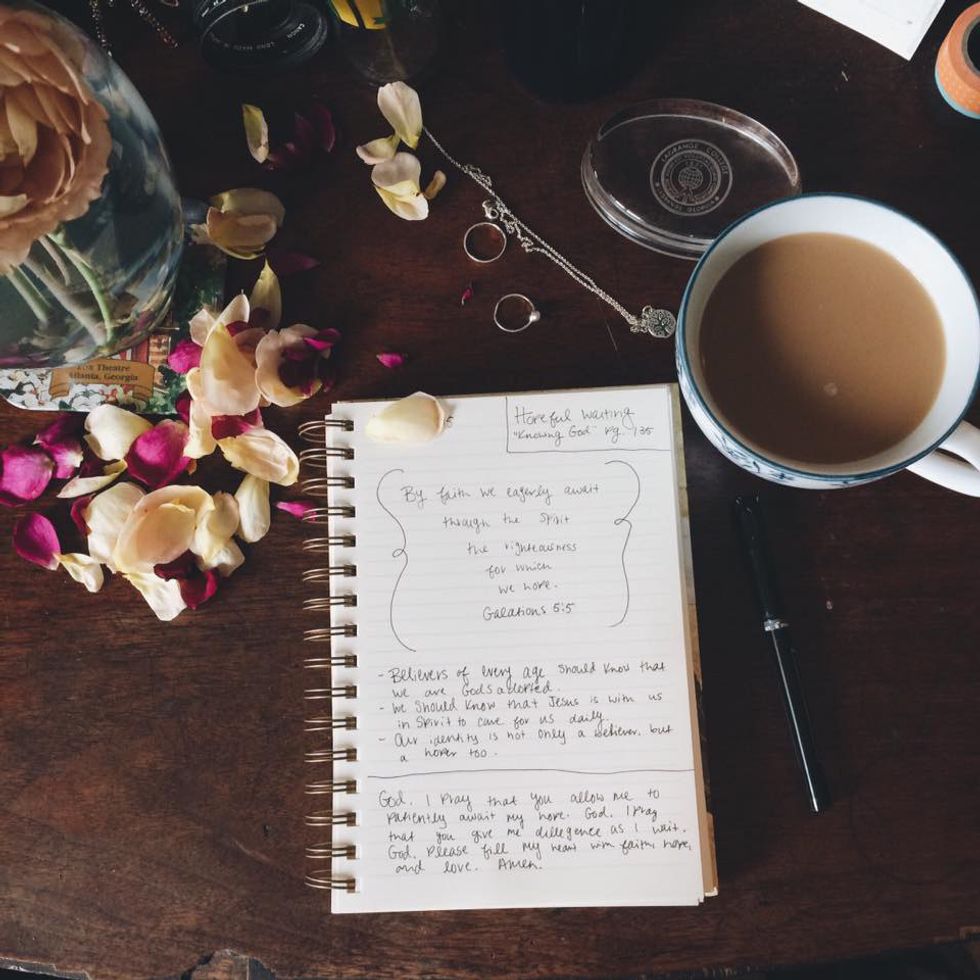 CANON
LAGRANGE COLLEGE
Fox Theatre
Atlanta, Georgia
Hopeful waiting
"Knowing God" pg. 135
By faith we eagerly await
through the Spirit
the righteousness
for which
we hope.
Galations 5:5
- Believers of every age should know that
we are Gods adopted.
- We should know that Jesus is with us
in Spirit to care for us daily.
- Our identity is not only a believer, but
a hoper too.
God, I pray that you allow me to
patiently await my hope. God, I pray
that you give me dillegence as I wait.
God, please fill my heart with faith, hope,
and love. Amen.